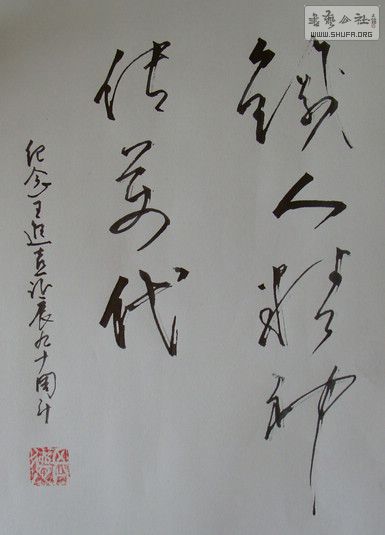 鐵人精神
传萬代
纪念王进喜诞辰九十周年
书艺公社
WWW.SHUFA.ORG